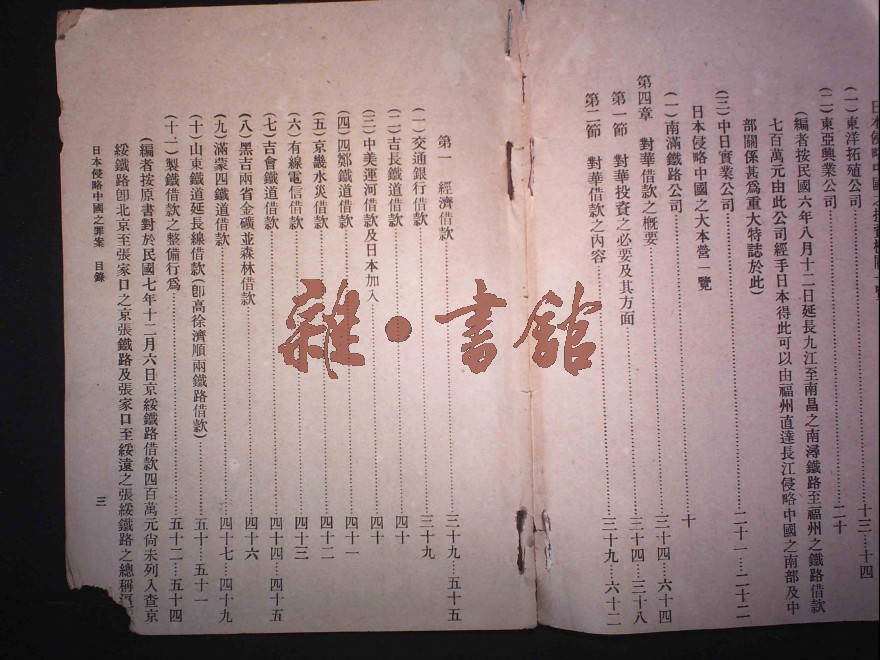 日本侵略中國之投資機關一覽
(一)東洋拓殖公司 十三…一四
(二)東亞興業公司 二十
(編者按民國六年八月十二日延長九江至南昌之南潯鐵路至福州之鐵路借款
七百萬元由此公司經手日本得此可以由福州直達長江侵略中國之南部及中
部關係甚爲重大特誌於此)
(三)中日實業公司 二十一…二十二
日本侵略中國之大本營一覽
(一)南滿鐵路公司 十
第四章 對華借款之概要 三十四…六十四
第一節 對華投資之必要及其方面 三十四…三十八
第二節 對華借款之內容 三十九…六十二
第一 經濟借款 三十九…五十五
(一)交通銀行借款 三十九
(二)吉長鐵道借款 四十
(三)中美運河借款及日本加入 四十
(四)四鄭鐵道借款 四十一
(五)京畿水災借款 四十二
(六)有線電信借款 四十三
(七)吉會鐵道借款 四十四…四十五
(八)黑吉兩省金礦並森林借款 四十六
(九)滿蒙四鐵道借款 四十七…四十九
(十)山東鐵道延長線借款(卽高徐濟順兩鐵路借款) 五十…五十一
(十二)製鐵借款之整備行爲 五十二…五十四
(編者按原書對於民國七年十二月六日京綏鐵路借款四百萬元尙未列入查京
綏鐵路卽北京至張家口之京張鐵路及張家口至綏遠之張綏鐵路之總稱
日本侵略中國之罪案 目錄 三
雜·書館